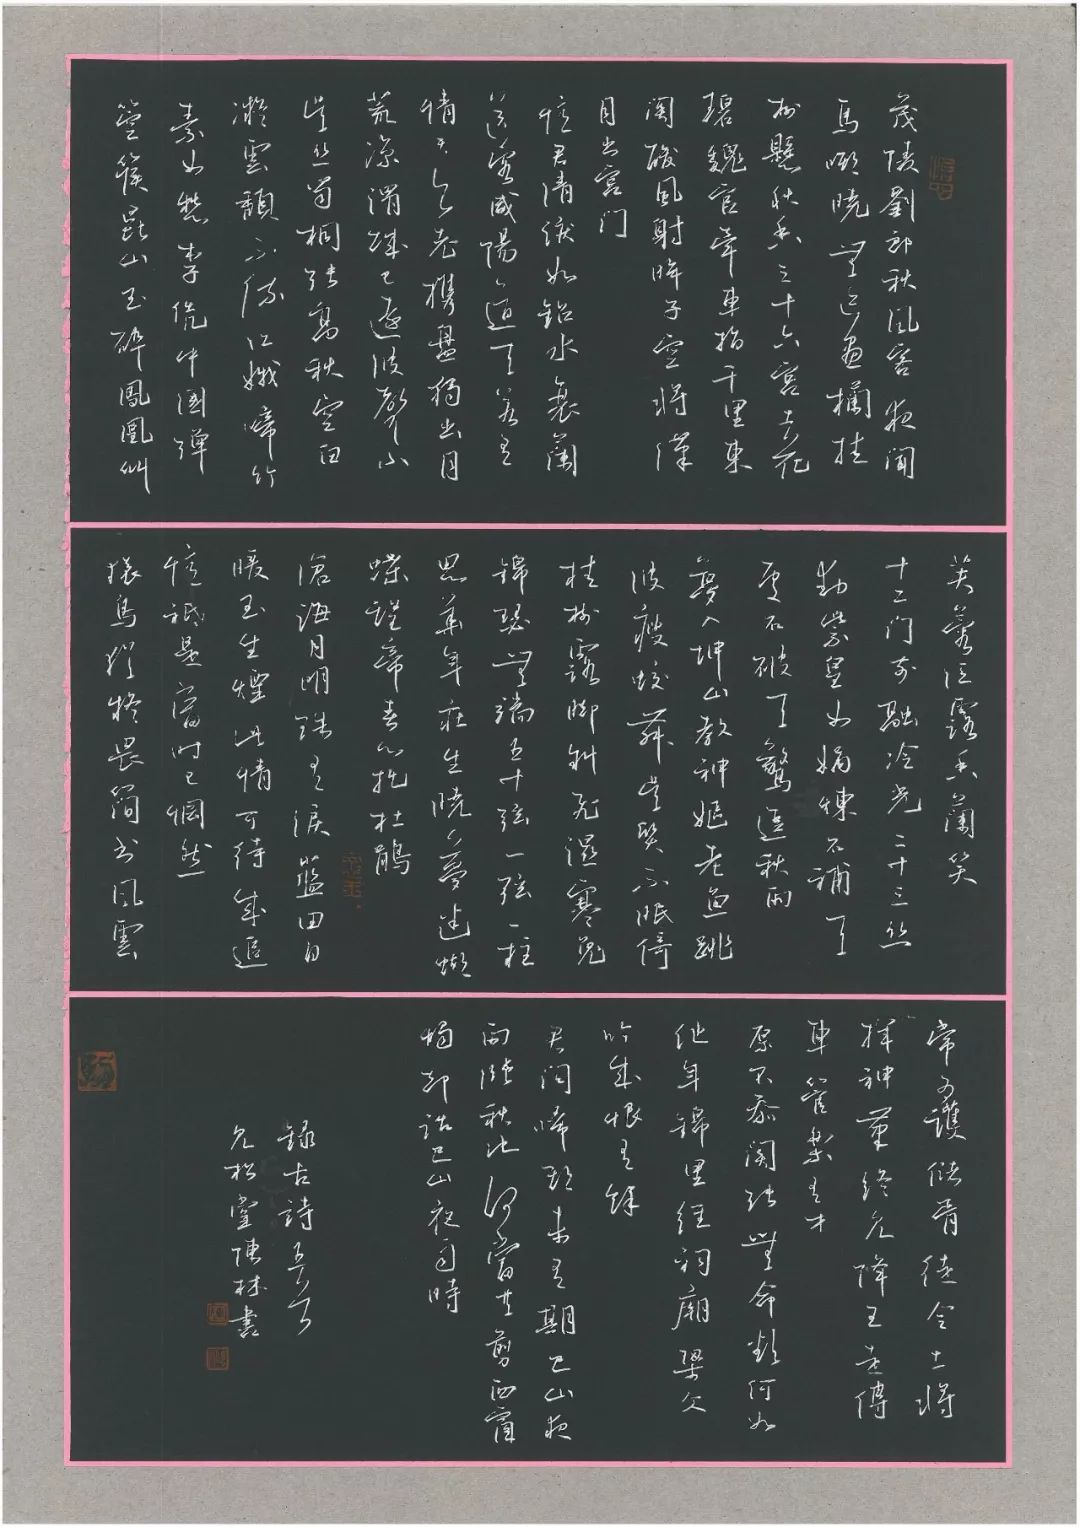 茂陵劉郎秋風客夜聞
馬嘶曉無跡畫欄桂
樹懸秋香三十六宮土花
碧魏官牽車指千里東
關酸風射眸子空將漢
月出宮门
憶君清淚如鉛水衰蘭
送客咸陽道天若有
情天亦老攜盤獨出月
荒涼渭城已遠波聲小
吳丝蜀桐張高秋空白
凝雲頹不流江娥啼竹
素女愁李憑中國彈
箜篌崑山玉碎鳳凰叫
芙蓉泣露香蘭笑
十二门前融冷光二十三丝
動紫皇女媧煉石補天
處石破天驚逗秋雨
夢入坤山教神嫗老魚跳
波瘦蛟舞吳質不眠倚
桂樹露腳斜飛濕寒兔
錦瑟無端五十弦一弦一柱
思華年莊生曉夢迷蝴
蝶望帝春心托杜鵑
滄海月明珠有淚藍田日
暖玉生煙此情可待成追
憶祇是當时已惘然
猿鳥猶疑畏簡書風雲
常為護儲胥徒令上將
揮神筆終見降王走傳
車管樂有才
原不忝關張無命欲何如
他年錦里經祠廟梁父
吟成恨有餘
君問歸期未有期巴山夜
雨漲秋池何當共剪西窗
燭却話巴山夜雨時
錄古詩五首
見松堂陳林書